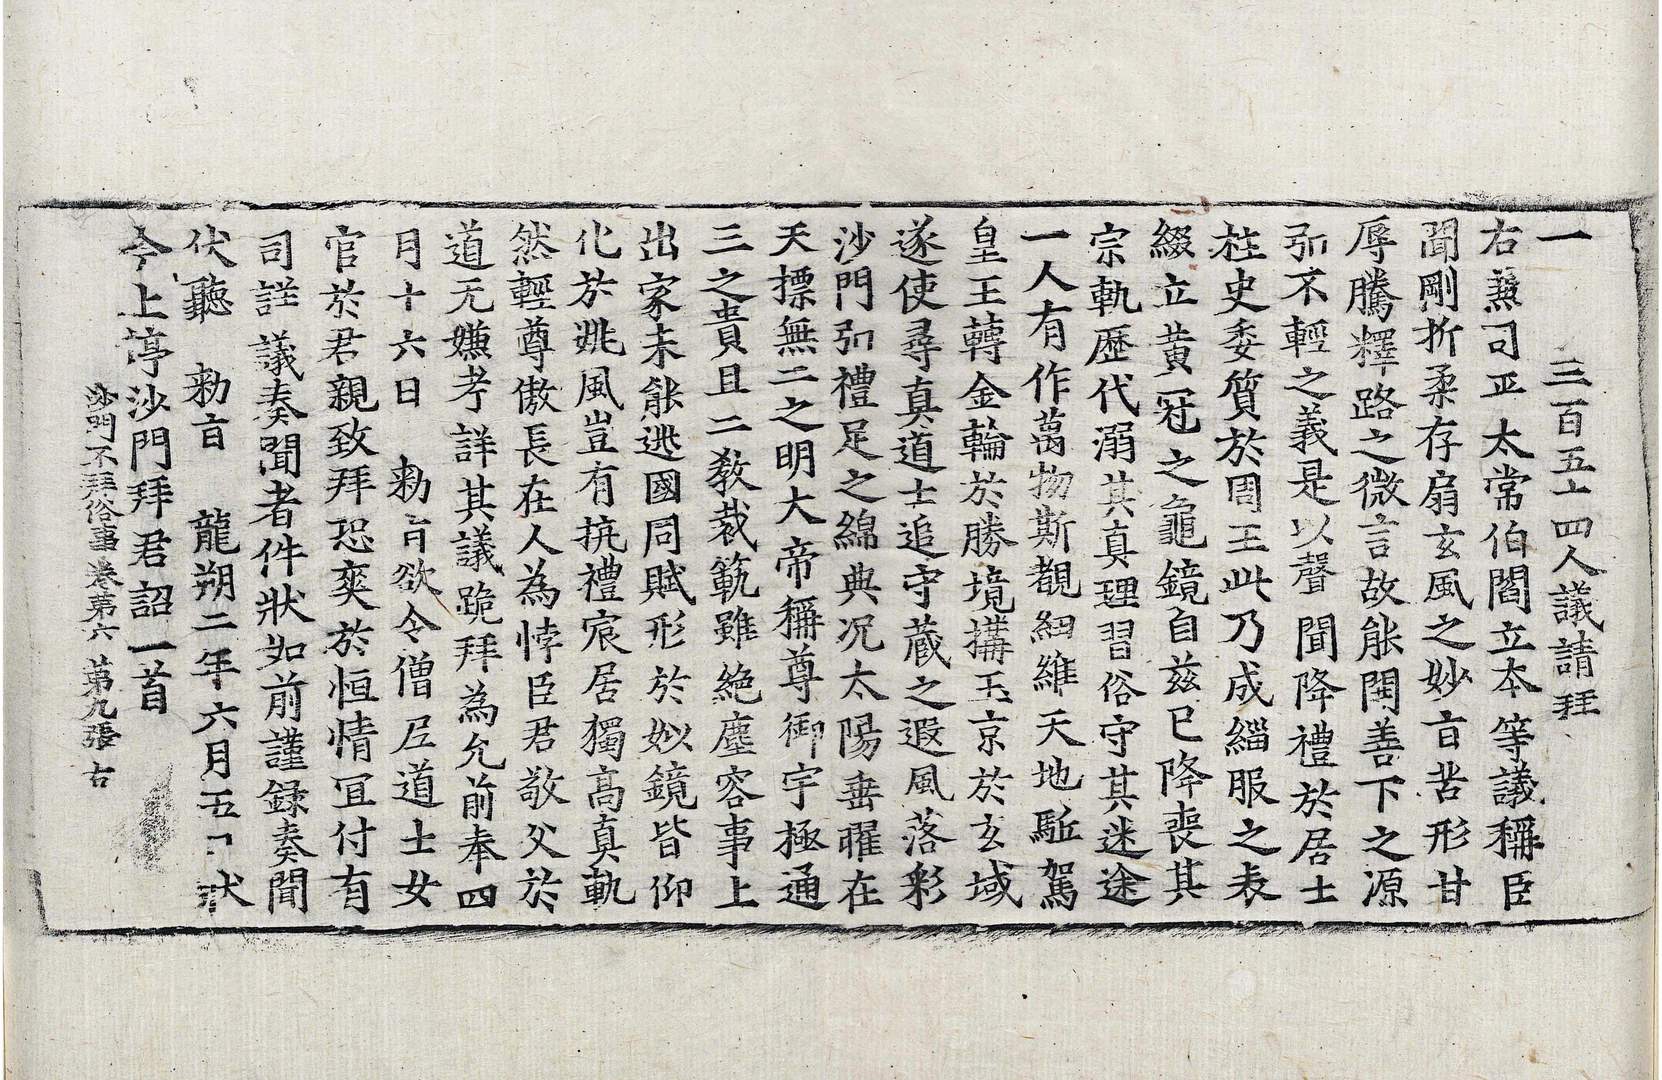 一　三百五十四人議請拜
右兼司平太常伯閻立本等議稱臣
聞剛折柔存扇玄風之妙旨苦形甘
辱騰釋路之微言故能開善下之源
弘不輕之義是以聲聞降禮於居士
柱史委質於周王此乃成緇服之表
綴立黃冠之龜鏡自茲已降喪其
宗軌歷代溺其真理習俗守其迷途
一人有作萬物斯覩紐維天地駈駕
皇王轉金輪於勝境搆玉京於玄域
遂使尋真道士追守藏之遐風落彩
沙門弘禮足之綿典況太陽垂曜在
天摽無二之明大帝稱尊御宇極通
三之貴且二教裁範雖絕塵容事上
出家未能逃國同賦形於姒鏡皆仰
化於姚風豈有抗禮宸居獨高真軌
然輕尊傲長在人為悖臣君敬父於
道无嫌考詳其議跪拜為允前奉四
月十六日　勑旨欲令僧尼道士女
官於君親致拜恐爽於恒情宜付有
司詳議奏聞者件狀如前謹録奏聞
伏聽　勑旨　龍朔二年六月五日狀
今上停沙門拜君詔一首
沙門不拜俗事卷第六　第九張　右